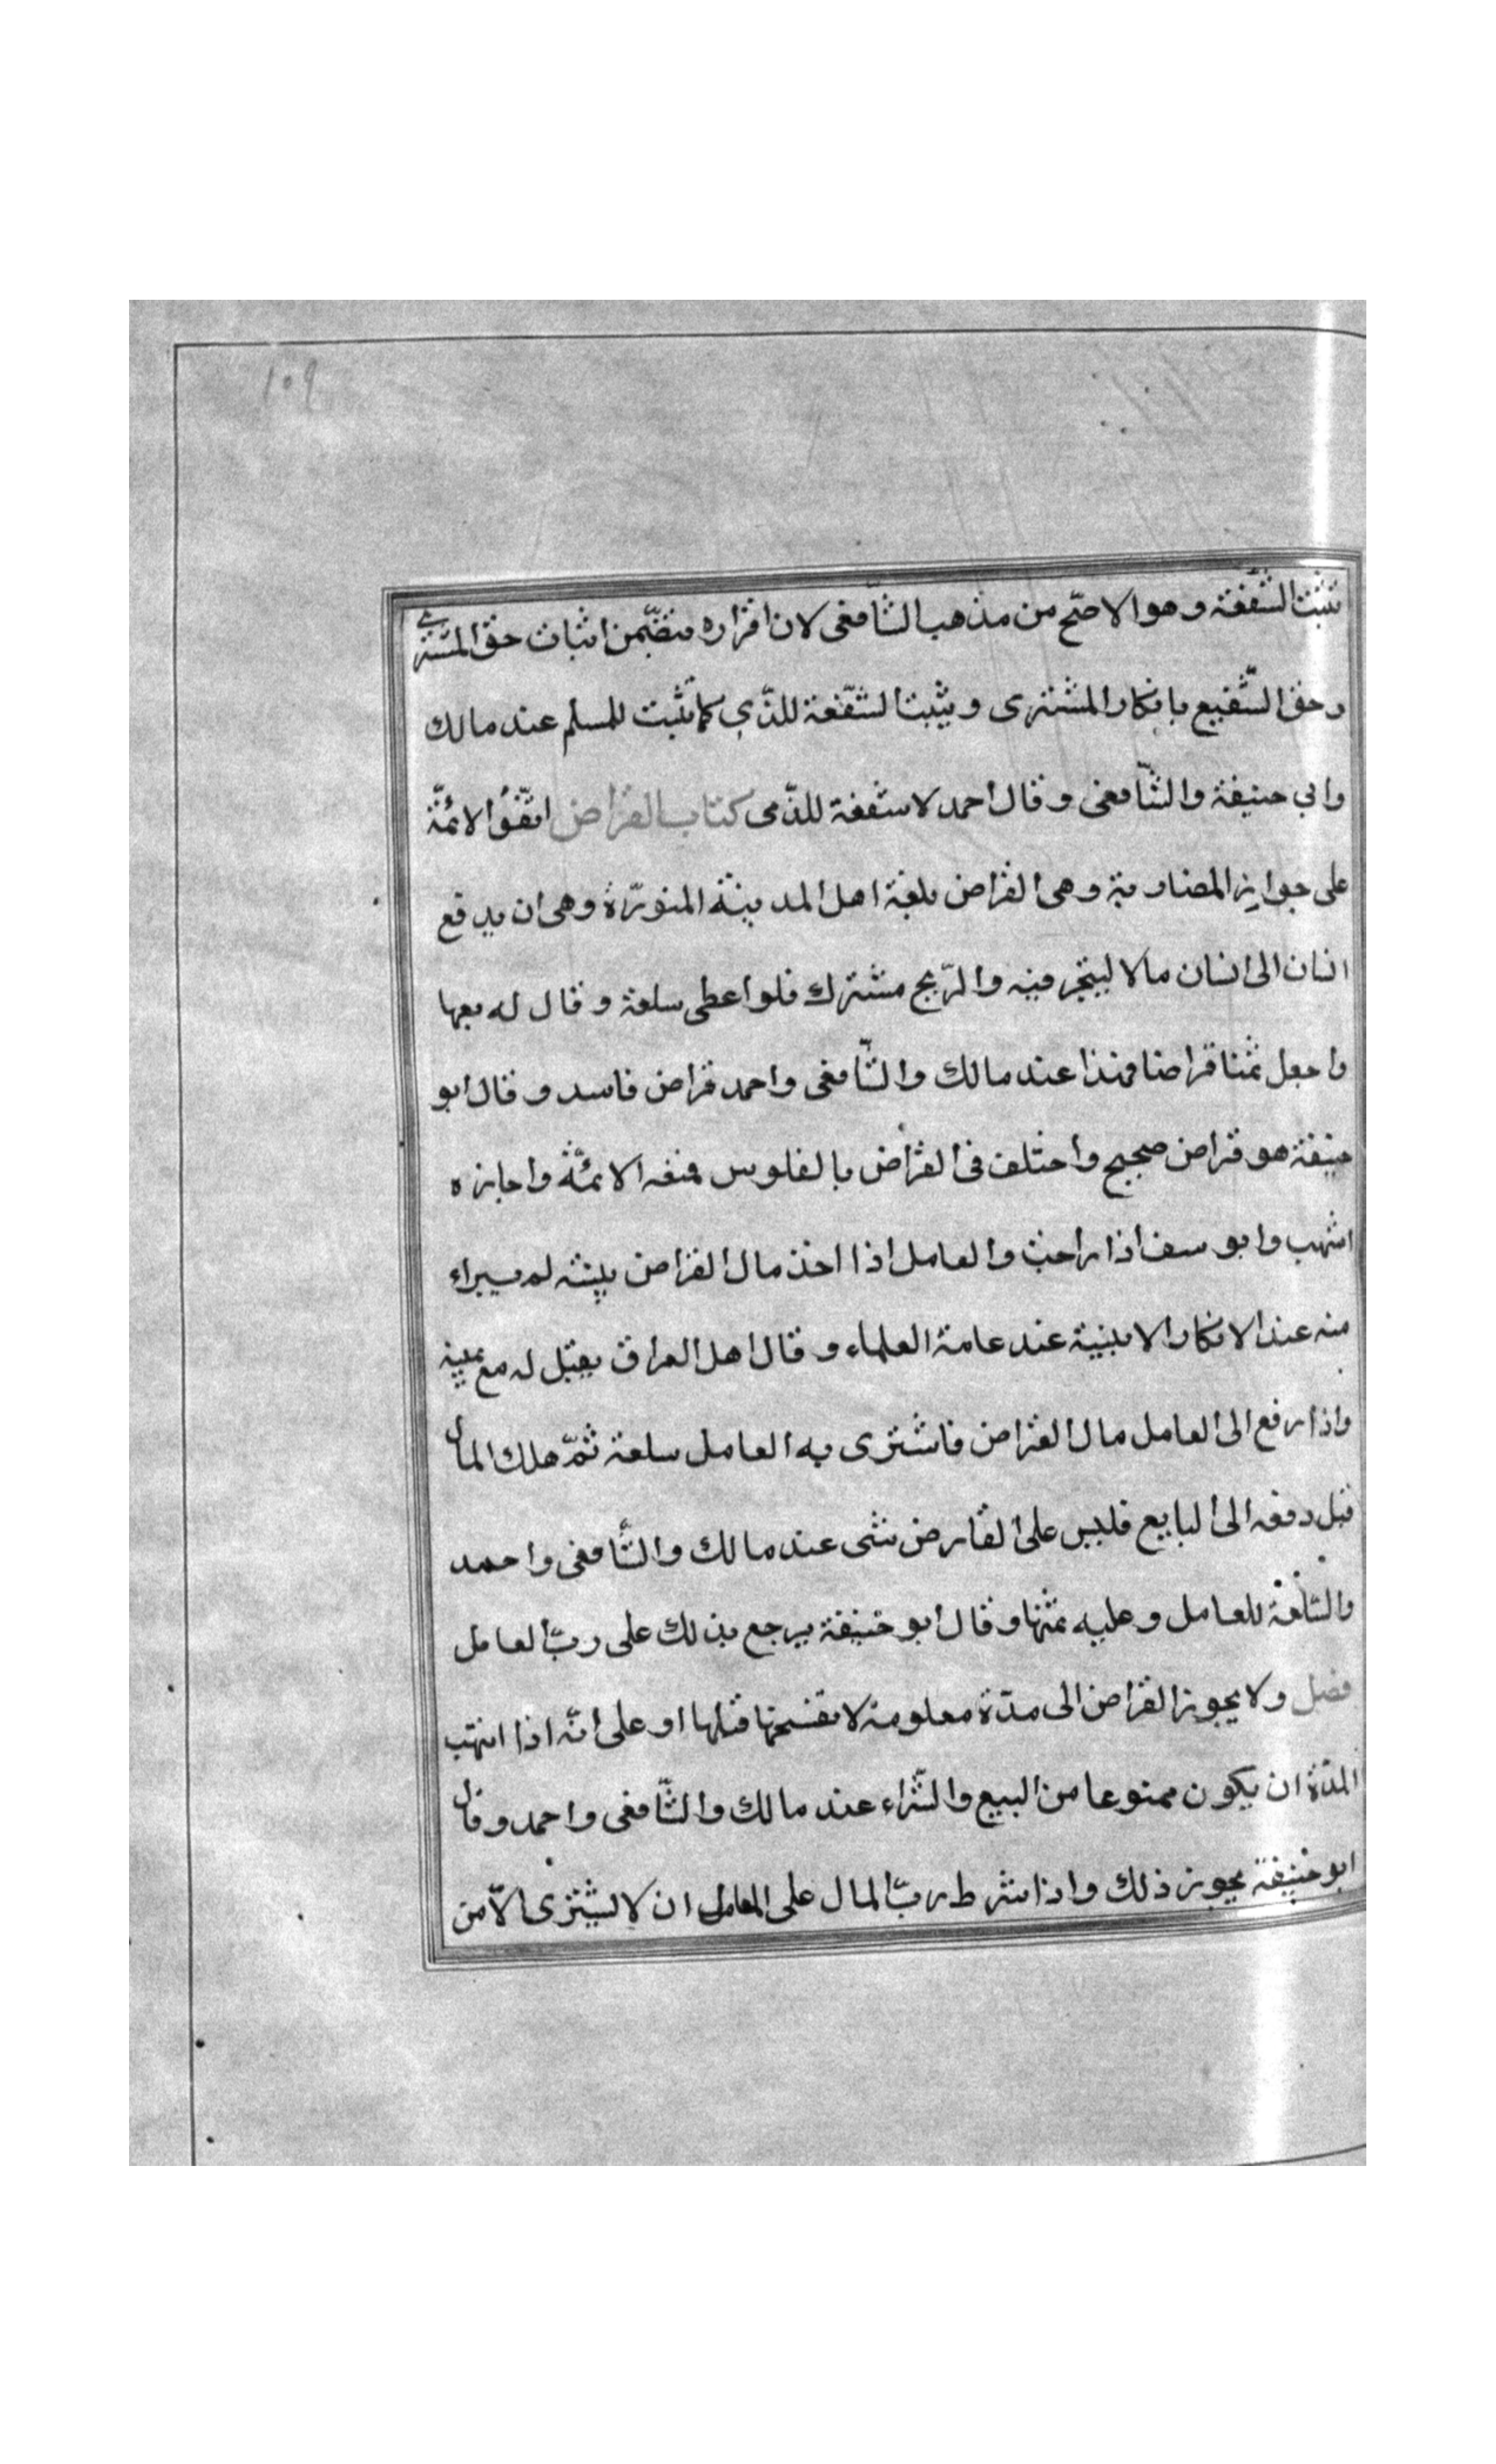 ١٠٩
تثبت الشفعة وهو الاصّح من مذهب الشّافعى لان اقراره متضّمن اثبات حق المشترى
وحق الشّفيع بانكار المشترى ويثبت الشّفعة للذّمي كما تثبت للمسلم عند مالك
وابي حنيفة والشّافعى وقال احمد لا شفعة للذّمى كتاب القراض اتّفقوا الائمّة
على جواز المضاربة وهى القراض بلغة اهل المدينة المنوّرة وهى ان يدفع
انسان الى انسان مالا ليتجر فيه والرّبح مشترك فلو اعطى سلعة وقال له بعها
واجعل ثمنا قراضا فهذا عند مالك والشّافعى واحمد قراض فاسد وقال ابو
حنيفة هو قراض صحيح واختلف فى القراض بالفلوس فمنعه الائمّة واجازه
اشهب وابو سف اذا راحت والعامل اذا اخذ مال القراض ببينته لم يبراء
منه عند الانكار الا ببنية عند عامة العلماء وقال اهل العراق يقبل له مع يمينه
واذا رفع الى العامل مال القراض فاشترى به العامل سلعة ثمّ هلك المال
قبل دفعه الى البايع فليس على القارض شى عند مالك والشّافعى واحمد
والسّلعة للعامل وعليه ثمنها وقال ابو حنيفة يرجع بذلك على ربّ العامل
فصل ولا يجوز القراض الى مدّة معلومة لا يفسخها قبلها او على انّه اذا انتهت
المدّة ان يكون ممنوعا من البيع والشّراء عند مالك والشّافعى واحمد وقال
ابو حنيفة يجوز ذلك واذا شرط ربّ المال على العامل ان لا يشترى الّا من